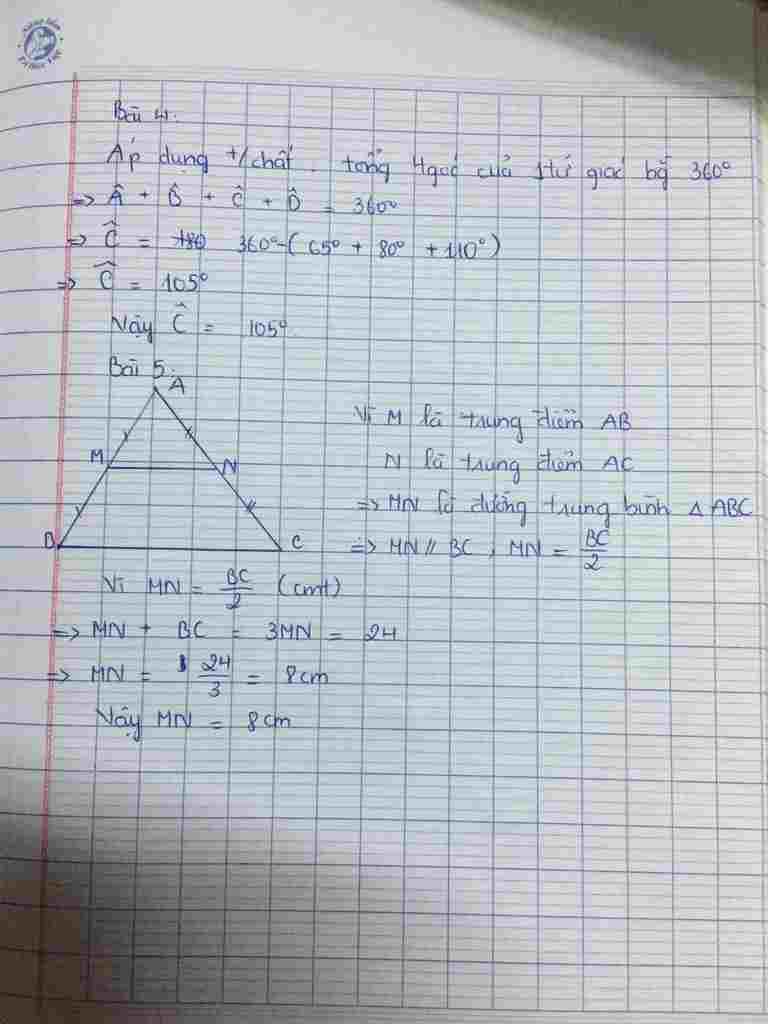 Bài 4.
Áp dụng t/chất. tổng 4góc của 1tứ giác bg 360°
=> Â + B̂ + Ĉ + D̂ = 360°
=> Ĉ = 180 360°-(65° + 80° + 110°)
=> Ĉ = 105°
Vậy Ĉ = 105°
Bài 5.
A
M
N
B
C
Vì M là trung điểm AB
N là trung điểm AC
=> MN là đường trung bình Δ ABC
=> MN // BC, MN = BC/2
Vì MN = BC/2 (cmt)
=> MN + BC = 3MN = 24
=> MN = 24/3 = 8cm
Vậy MN = 8cm